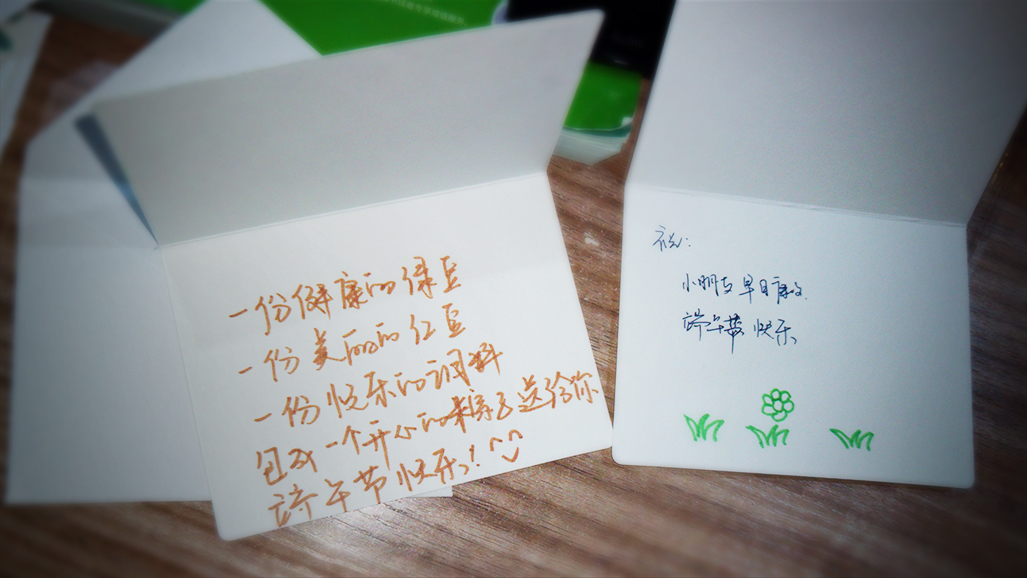 一份健康的绿豆
一份美丽的红豆
一份快乐的调料
包成一个开心的粽子送给你
端午节快乐!
祝:
小朋友早日康复.
端午节快乐